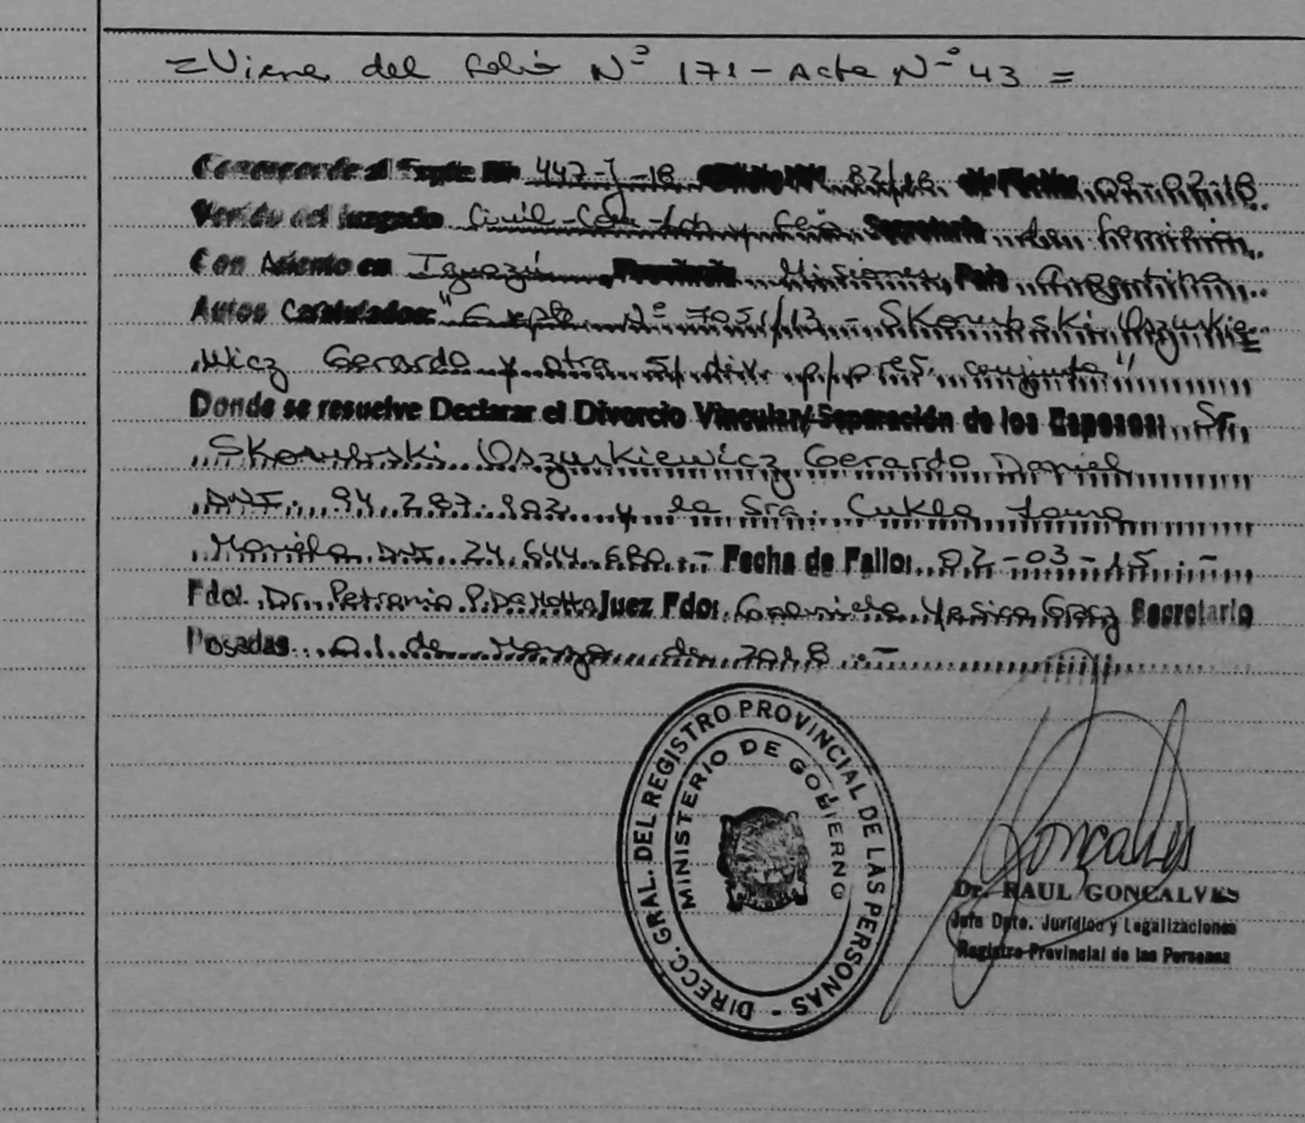 =Viene del folio Nº 171 - Acta Nº 43 =
Corresponde al Expte. Nº 447-J-18 Oficio Nº 82/18 de Fecha 08-02-18
Venido del Juzgado Civil-Com-Lab y Flia Secretaría de Familia
Con Asiento en Iguazú Provincia Misiones País Argentina
Autos Caratulados: "Expte. Nº 7051/13 - Skorubski Oszurkie=
wicz Gerardo y otra S/ div. p/pres. conjunta"
Donde se resuelve Declarar el Divorcio Vincular/ Separación de los Esposos: Sr.
Skorubski Oszurkiewicz Gerardo Daniel
DNI. 94.287.902 y la Sra. Cukla Laura
Mariela DNI 24.644.680.- Fecha de Fallo: 02-03-15.-
Fdo. Dr. Petronio P. Da Motta Juez Fdo: Gabriela Yesica Juez Secretario
Posadas 01 de Marzo de 2018.-
DIRECC. GRAL. DEL REGISTRO PROVINCIAL DE LAS PERSONAS -
MINISTERIO DE GOBIERNO
Gonçalves
Dr. RAUL GONCALVES
Jefe Dpto. Jurídico y Legalizaciones
Registro Provincial de las Personas